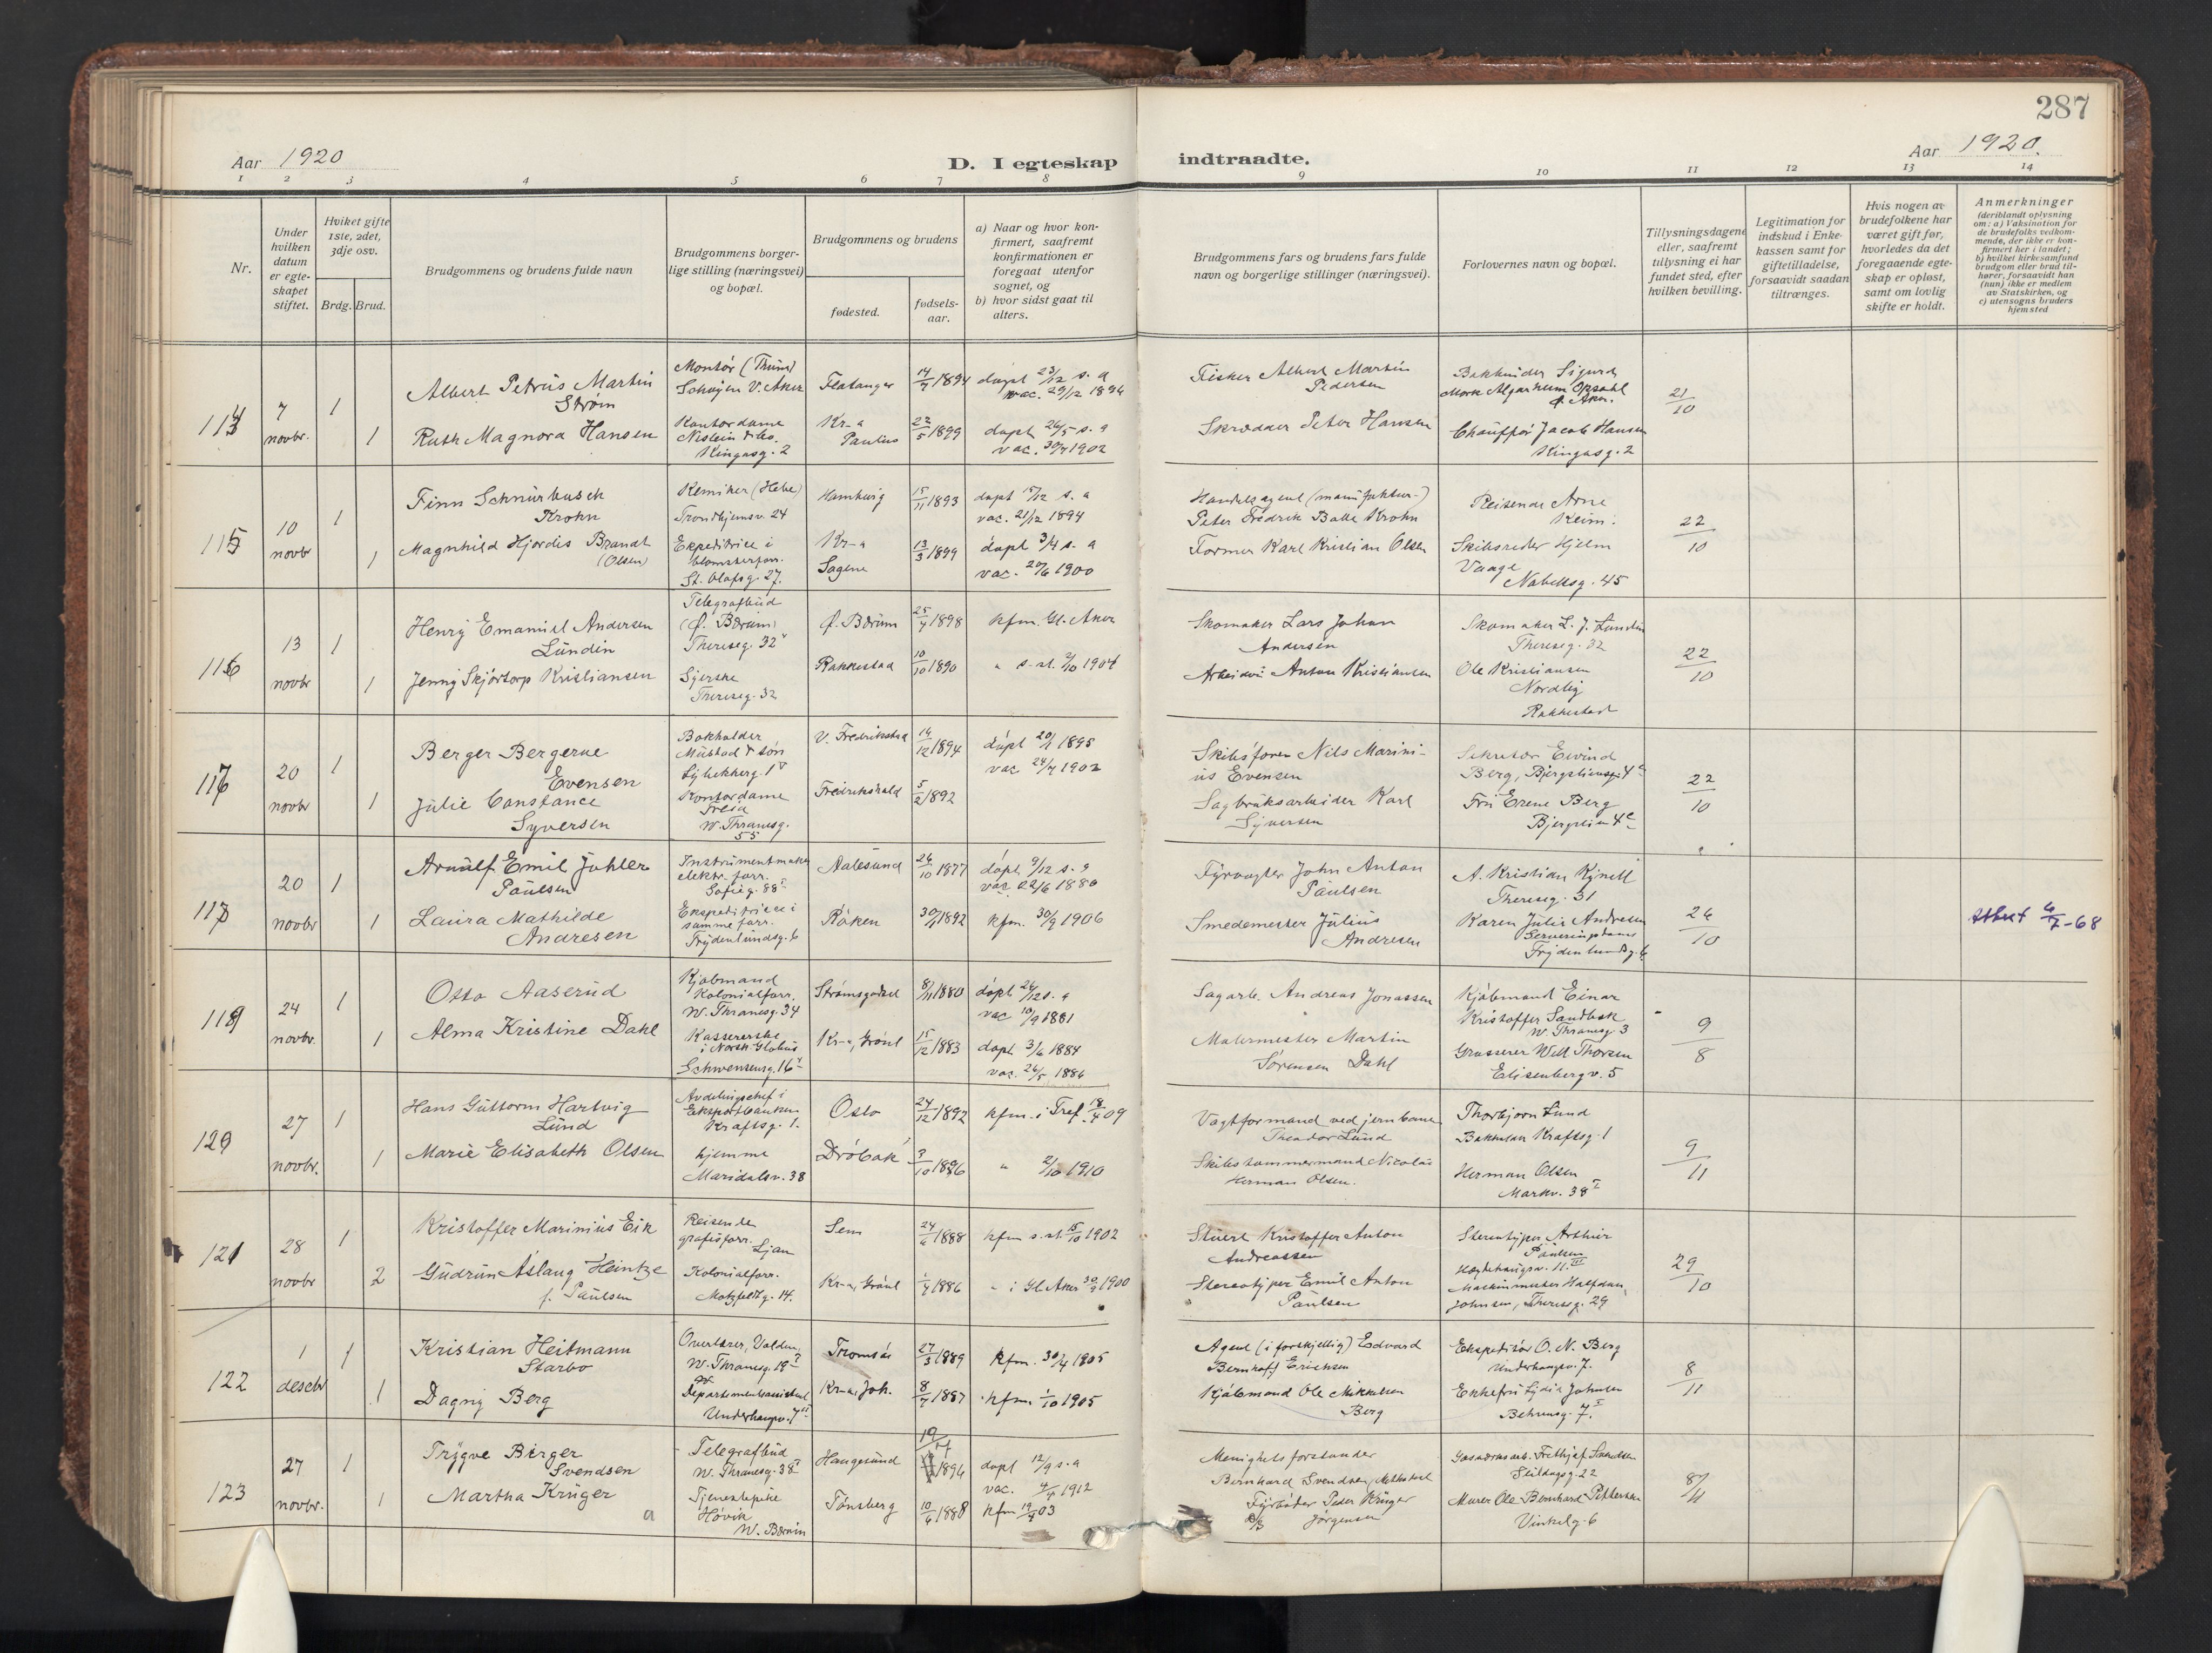 287
Aar 1920
D. I egteskap indtraadte.
Aar 1920.
1 2 3 4 5 6 7 8 9 10 11 12 13 14
Nr.
Under hvilken datum er egteskapet stiftet.
Hvilket gifte 1ste, 2det, 3dje osv.
Brdg. Brud.
Brudgommens og brudens fulde navn
Brudgommens borgerlige stilling (næringsvei) og bopæl.
Brudgommens og brudens
fødested.
fødselsaar.
a) Naar og hvor konfirmert, saafremt konfirmationen er foregaat utenfor sognet, og
b) hvor sidst gaat til alters.
Brudgommens fars og brudens fars fulde navn og borgerlige stillinger (næringsvei).
Forlovernes navn og bopæl.
Tillysningsdagene eller, saafremt tillysning ei har fundet sted, efter hvilken bevilling.
Legitimation for indskud i Enkekassen samt for giftetilladelse, forsaavidt saadan tiltrænges.
Hvis nogen av brudefolkene har været gift før, hvorledes da det foregaaende egteskap er opløst, samt om lovlig skifte er holdt.
Anmerkninger (deriblandt oplysning om: a) Vaksination for de brudefolks vedkommende, der ikke er konfirmert her i landet; b) hvilket kirkesamfund brudgom eller brud tilhører, forsaavidt han (hun) ikke er medlem av Statskirken, og c) utensogns bruders hjemsted
7 novbr. 1
Albert Petrus Martin Strøm
Montør (Thune)
V. Aker
Flatanger
14/7 1894
døpt 23/12 s. a
vac. 29/12 1894
Fisker Albert Martin Pedersen
21/10
1
Ruth Magnora Hansen
Kontordame
Kingosg. 2
Kr-a Paulus
22/5 1899
døpt 26/5 s. a
vac. 30/7 1902
Skrædder Peter Hansen
Chauffør Jacob Hansen
Kingosg. 2
115
10 novbr 1
Finn Schnürbusch Krohn
Kemiker (Hebe)
Trondhjemsv. 24
Hamburg
15/11 1893
døpt 15/12 s. a
vac. 21/12 1894
Handelsagent (manufaktur-)
Peter Fredrik Balle Krohn
Reisende Arne
22/10
1
Magnhild Hjørdis Brandt (Olsen)
Ekspeditrice i blomsterforr.
St. Olafsg. 27.
Kr-a Sagene
13/3 1899
døpt 3/4 s. a
vac. 20/6 1900
Former Karl Kristian Olsen
Skibsreder Hjelm
Vaage
Nobelsg. 45
116
13 novbr 1
Henry Emanuel Andersen Lundin
Telegrafbud
(Ø. Bærum)
Theresesg. 32
Ø. Bærum
25/7 1898
kfm. Gl. Aker
Skomaker Lars Johan Andersen
Skomaker L. J. Lundin
Theresesg. 32
22/10
1
Jenny Skjørtorp Kristiansen
Syerske
Theresesg. 32
Rakkestad
10/10 1890
" s. st. 2/10 1904
Anton Kristiansen
Ole Kristiansen
Nordlig
Rakkestad
117
20 novbr 1
Berger Bergerne Evensen
Bokholder
Mustad & Søn
V. Fredrikstad
14/12 1894
døpt 20/1 1895
vac 24/7 1902
Skibsfører Nils Marinius Evensen
Sekretær Eivind
Berg, Bjergliensg. 4
22/10
1
Julie Constance Syversen
Kontordame
Freia
W. Thranesg. 55
Fredrikshald
5/2 1892
Sagbruksarbeider Karl Syversen
Fru Erene Berg
20 novbr 1
Arnulf Emil Johler Paulsen
Instrumentmaker
elektr. forr.
Sofieg. 88
Aalesund
26/10 1877
døpt 9/12 s. a
vac 22/6 1880
Fyrvogter John Anton Paulsen
A. Kristian Kynell
Theresesg. 31
26/10
1
Laura Mathilde Andresen
Ekspeditrice i
samme forr.
Frydenlundsg. 6
Røken
1892
kfm. 30/9 1906
Smedemester Julius Andresen
Karen Julie Andresen
Serveringsdame
Frydenlundsg. 6
Attest 6/7-68
119
24 novbr. 1
Otto Aaserud
Kjøbmand
Kolonialforr.
W. Thranesg. 34
Strømsgodset
8/11 1880
døpt 26/12 s. a
vac 10/9 1881
Sagarb. Andreas Jonassen
Kjøbmand Einar
Kristoffer Sandbæk
W. Thranesg 3
9/8
1
Alma Kristine Dahl
Kassererske
i Norsk Globus
Schwensensg. 16
Kr-a, Grønl
15/12 1883
døpt 3/6 1884
vac. 26/5 1886
Malermester Martin Sørensen Dahl
Grosserer Will Thorsen
Elisenbergv. 5
27 novbr. 1
Hans Guttorm Hartvig Lund
Avdelingschef i
Eksportbanken
Kraftsg. 1.
Oslo
24/12 1892
kfm. i Tref. 18/4 09
Vagtformand ved jernbane
Theodor Lund
Thorbjørn Lund
Kraftsg. 1
9/11
1
Marie Elisabeth Olsen
hjemme
Maridalsv. 38
Drøbak
3/10 1896
" 2/10 1910
Skibstømmermand Nicolai
Herman Olsen.
Herman Olsen
Markv. 38
121
28 novbr 1
Kristoffer Marinius Eik
Reisende
grafisforr.
Ljan
Sem
24/6 1888
kfm s. st. 15/10 1902
Stuert Kristoffer Anton Andreassen
Stereotypør Arthur Paulsen
29/10
2
Gudrun Aslaug Heintze
f. Paulsen
Kolonialforr.
Motzfeldtg. 14.
Kr-a, Grønl
1886
" i Gl. Aker 30/9 1900
Stereotyper Emil Anton Paulsen
Maskinmester Halfdan
Johnsen, Theresesg. 29
122
1 desebr 1
Kristian Heitmann Starbo
Overlærer, Volden,
W. Thranesg. 19
Tromsø
27/3 1889
kfm. 30/4 1905
Agent (i forskjellig) Edvard
Bernhoft Erichsen
Ekspeditør O. N. Berg
Underhaugsv. 7.
8/11
1
Dagny Berg
Departementsassistent
Underhaugsv. 7
Kr-a, Joh.
8/7 1887
kfm. 1/10 1905
Kjøbmand Ole Mikkelsen Berg
Enkefru Lydia Johnsen
Behrensg. 7.
123
27 novbr. 1
Trygve Birger Svendsen
Telegrafbud
W. Thranesg. 38
Haugesund
1894
døpt 12/9 s. a
vac. 4/4 1912
Menighetsforstander
Bernhard Svendsen, Methodist
Seildugsg. 22
8/11
1
Martha Krüger
Tjenestepike
Høvik
W. Bærum
Tønsberg
10/6 1888
kfm 19/4 03
Fyrbøter Peder Krüger Jørgensen
Murer Ole Bernhard Pettersen
Vinkelg. 6